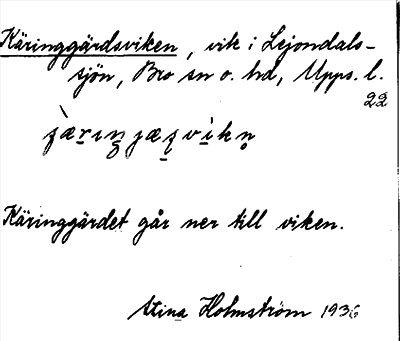 Käringgärdsviken, vik i Lejondals-
sjön, Bro sn o. hd, Upps. l.
22
Käringgärdet går ner till viken.
Stina Holmström 1936